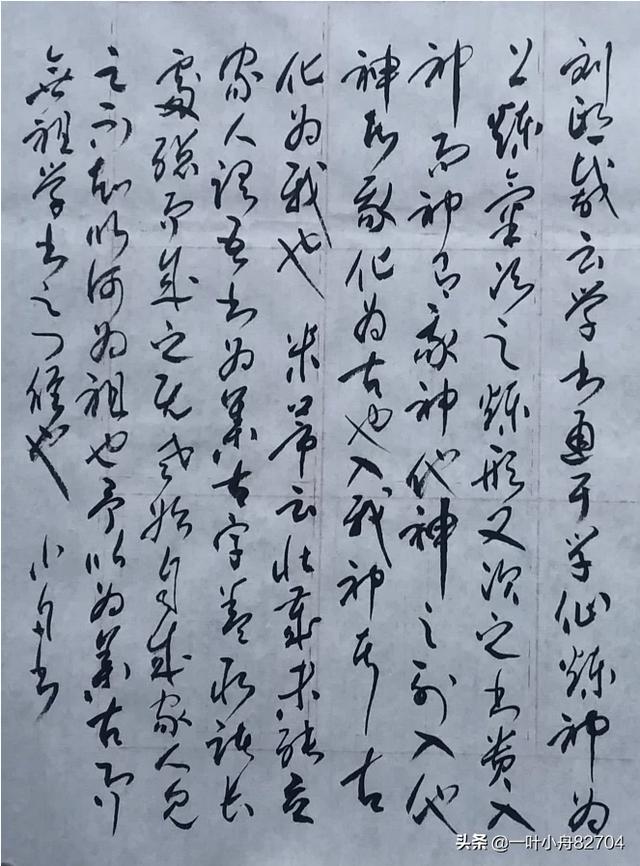 刘熙载云学书通于学仙煉神为
上煉氣次之煉形又次之书贵入
神而神有我神他神之别入他
神者我化为古也入我神者古
化为我也 米芾云壮岁未能立
家人谓吾书为集古字盖取诸长
處總而成之既老始自成家人见
之不知以何为祖也予以为集古而
無祖学书之一径也 小舟书
头条 @一叶小舟82704